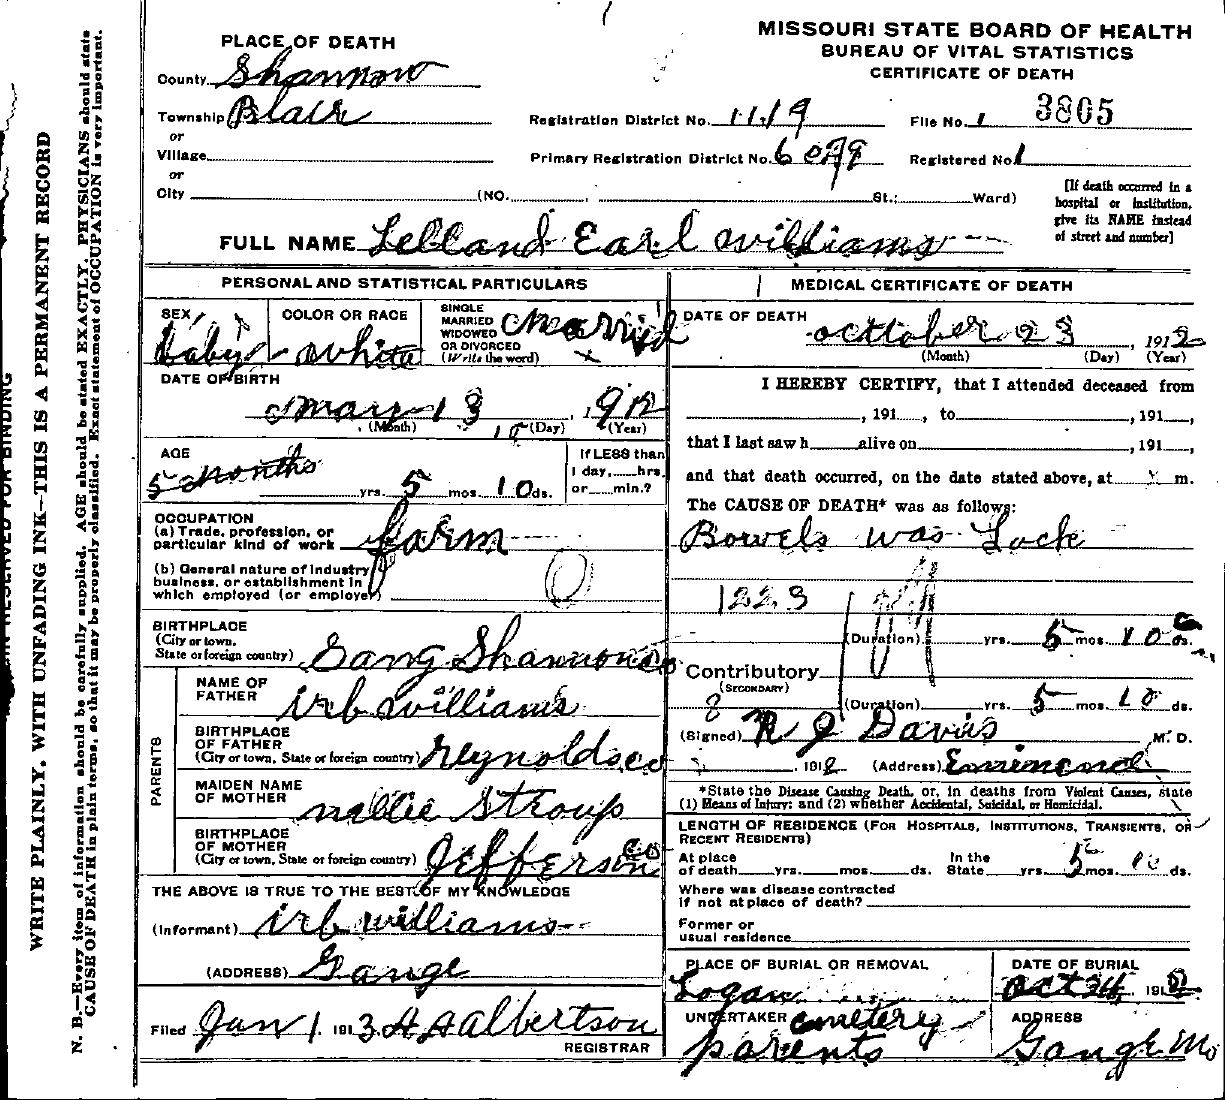 MISSOURI STATE BOARD OF HEALTH
BUREAU OF VITAL STATISTICS
CERTIFICATE OF DEATH
PLACE OF DEATH
County Shannon
Township Blair
or
Village
or
City (NO. St.; Ward)
Registration District No. 1119 File No. 1 3805
Primary Registration District No. Registered No. 1
[If death occurred in a
hospital or institution,
give its NAME instead
of street and number]
FULL NAME Lelland Earl Williams
PERSONAL AND STATISTICAL PARTICULARS
SEX baby
COLOR OR RACE white
SINGLE
MARRIED
WIDOWED
OR DIVORCED
(Write the word) married
DATE OF BIRTH
may 13 1912
(Month) (Day) (Year)
AGE
5 months
yrs. 5 mos. 10 ds.
If LESS than
1 day, hrs.
or min.?
OCCUPATION
(a) Trade, profession, or
particular kind of work farm
(b) General nature of industry
business, or establishment in
which employed (or employer)
BIRTHPLACE
(City or town,
State or foreign country) Gang Shannon co
PARENTS
NAME OF
FATHER irb williams
BIRTHPLACE
OF FATHER
(City or town, State or foreign country) Reynolds co
MAIDEN NAME
OF MOTHER nellie Stroup
BIRTHPLACE
OF MOTHER
(City or town, State or foreign country) Jefferson co
THE ABOVE IS TRUE TO THE BEST OF MY KNOWLEDGE
(Informant) irb williams
(ADDRESS) Gange
Filed Jan 1 1913 A A Albertson
REGISTRAR
MEDICAL CERTIFICATE OF DEATH
DATE OF DEATH
octtober 23, 1912
(Month) (Day) (Year)
I HEREBY CERTIFY, that I attended deceased from
, 191 , to , 191 ,
that I last saw h alive on , 191 ,
and that death occurred, on the date stated above, at m.
The CAUSE OF DEATH* was as follows:
Bowels was Lock
1223
(Duration) yrs. 5 mos. 10 ds.
Contributory
(SECONDARY)
8 (Duration) yrs. 5 mos. 10 ds.
(Signed) N J Davis M. D.
, 1912 (Address)
*State the Disease Causing Death, or, in deaths from Violent Causes, state
(1) Means of Injury; and (2) whether Accidental, Suicidal, or Homicidal.
LENGTH OF RESIDENCE (FOR HOSPITALS, INSTITUTIONS, TRANSIENTS, OR
RECENT RESIDENTS)
At place
of death yrs. mos. ds. In the
State yrs. 5 mos. 10 ds.
Where was disease contracted
if not at place of death?
Former or
usual residence
PLACE OF BURIAL OR REMOVAL
Logan cemetery
DATE OF BURIAL
oct 24, 1912
UNDERTAKER
parents
ADDRESS
Gange Mo
WRITE PLAINLY, WITH UNFADING INK—THIS IS A PERMANENT RECORD
N. B.—Every item of information should be carefully supplied. AGE should be stated EXACTLY. PHYSICIANS should state
CAUSE OF DEATH in plain terms, so that it may be properly classified. Exact statement of OCCUPATION is very important.
RESERVED FOR BINDING